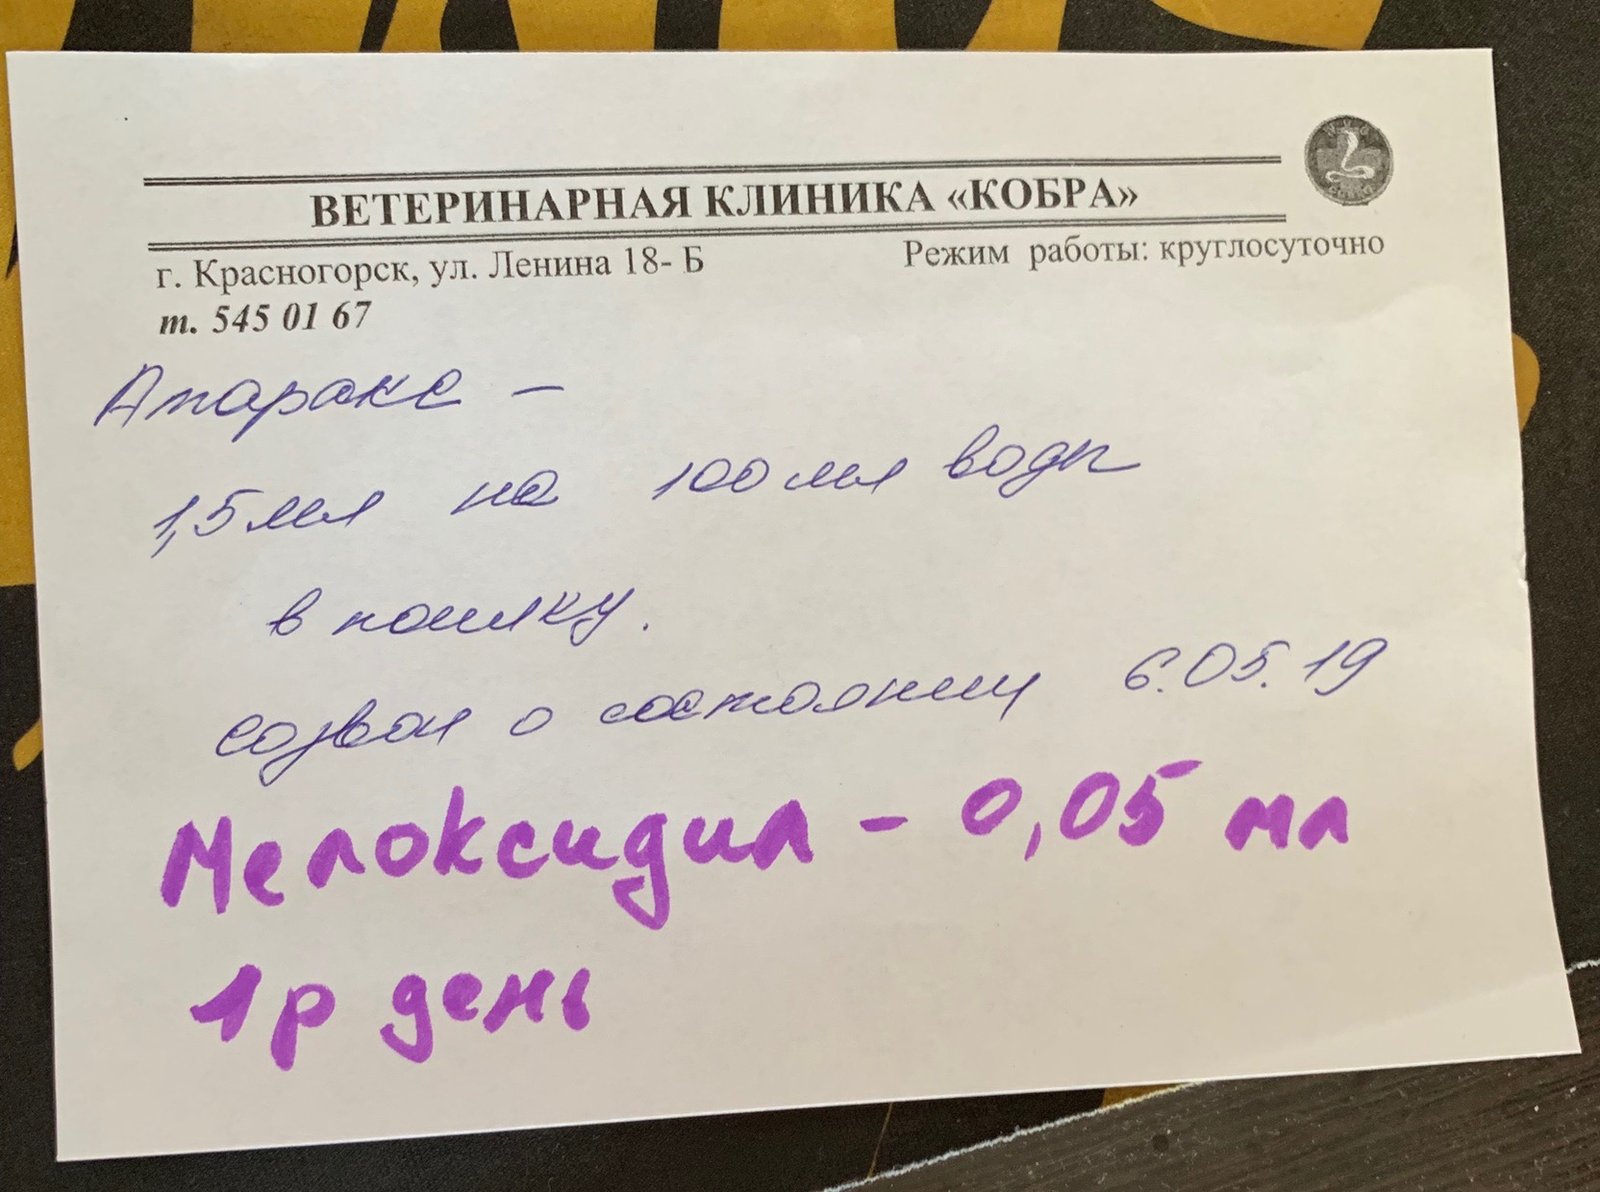 ВЕТЕРИНАРНАЯ КЛИНИКА «КОБРА»
г. Красногорск, ул. Ленина 18- Б
Режим работы: круглосуточно
т. 545 01 67
Атаракс –
1,5 мл на 100 мл воды
в поилку.
созвон о состоянии 6.05.19
Мелоксидил - 0,05 мл
1р день